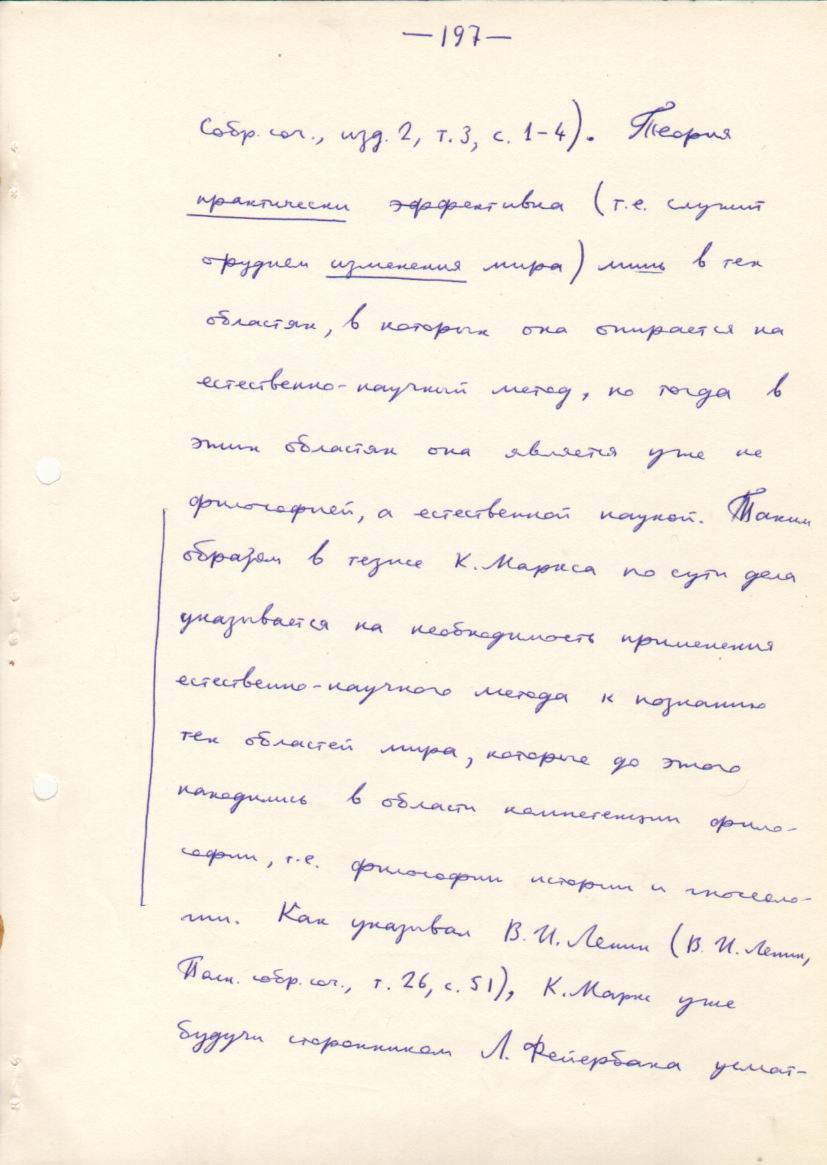 —197—
Собр. соч., изд. 2, т. 3, с. 1-4). Теория
практически эффективна (т.е. служит
орудием изменения мира) лишь в тех
областях, в которых она опирается на
естественно-научный метод, но тогда в
этих областях она является уже не
философией, а естественной наукой. Таким
образом в тезисе К. Маркса по сути дела
указывается на необходимость применения
естественно-научного метода к познанию
тех областей мира, которые до этого
находились в области компетенции фило-
софии, т.е. философии истории и гносеоло-
гии. Как указывал В. И. Ленин (В. И. Ленин,
Полн. собр. соч., т. 26, с. 51), К. Маркс уже
будучи сторонником Л. Фейербаха усмат-